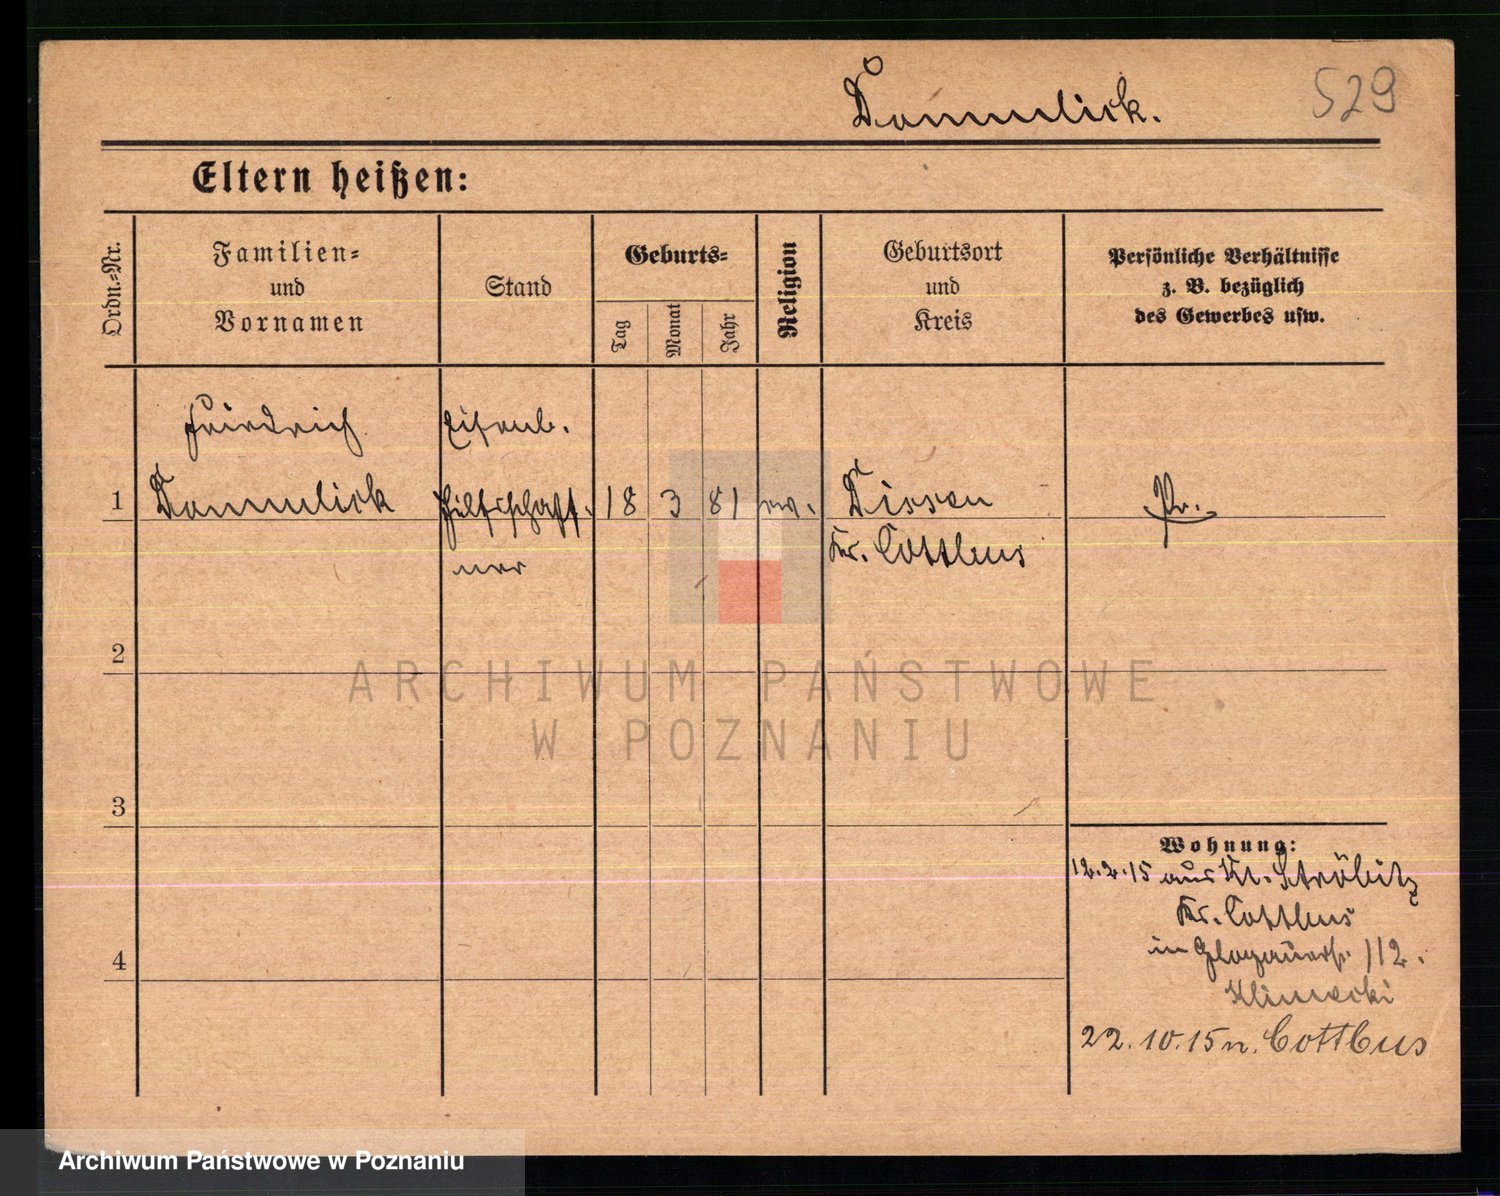 Dommulick.
529
Eltern heißen:
Ordn.-Nr.
Familien-
und
Vornamen
Stand
Geburts-
Tag
Monat
Jahr
Religion
Geburtsort
und
Kreis
Persönliche Verhältnisse
z. B. bezüglich
des Gewerbes usw.
Friedrich
Eisenb.
1
Dommulick
Hülfsschaff-
18
3
81
ev.
Dissen
Pr.
ner
Kr. Cottbus
2
3
4
Wohnung:
12.2.15 aus Kl. Ströbitz
Kr. Cottbus
in Glogauerstr. 112.
22.10.15 n. Cottbus
ARCHIWUM PAŃSTWOWE
W POZNANIU
Archiwum Państwowe w Poznaniu